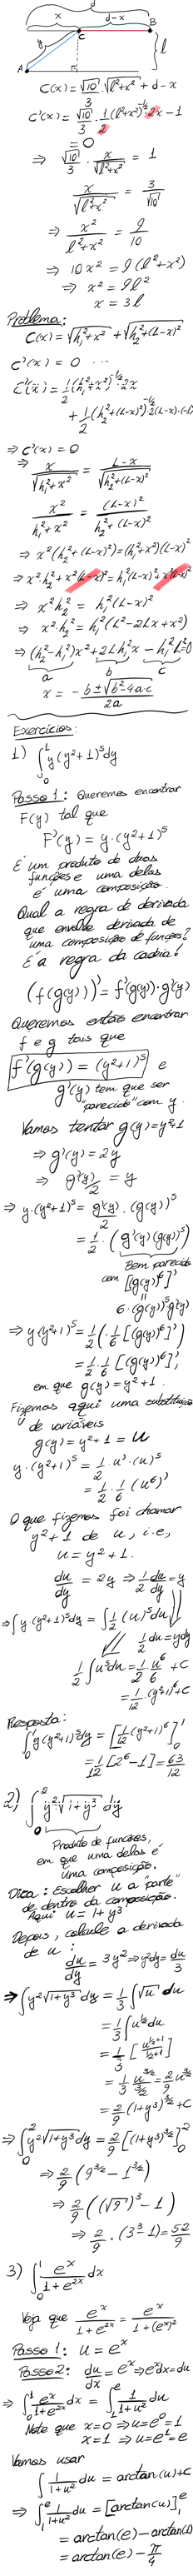 d
x d-x
C B
y
l
A
C(x) = √10/3 · √(l²+x²) + d-x
C'(x) = √10/3 · 1/2 (l²+x²)^(-1/2) 2x - 1
= 0
⇒ √10/3 · x/√(l²+x²) = 1
x/√(l²+x²) = 3/√10
⇒ x²/(l²+x²) = 9/10
⇒ 10x² = 9(l²+x²)
⇒ x² = 9l²
x = 3l
Problema:
C(x) = √(h₁²+x²) + √(h₂²+(L-x)²)
C'(x) = 0 ...
C'(x) = 1/2 (h₁²+x²)^(-1/2) · 2x
+ 1/2 (h₂²+(L-x)²)^(-1/2) · 2(L-x)·(-1)
⇒ C'(x) = 0
⇒ x/√(h₁²+x²) = (L-x)/√(h₂²+(L-x)²)
x²/(h₁²+x²) = (L-x)²/(h₂²+(L-x)²)
⇒ x²(h₂²+(L-x)²) = (h₁²+x²)(L-x)²
⇒ x²h₂² + x²(L-x)² = h₁²(L-x)² + x²(L-x)²
⇒ x²h₂² = h₁²(L-x)²
⇒ x²·h₂² = h₁²(L²-2Lx+x²)
⇒ (h₂²-h₁²)x² + 2Lh₁²x - h₁²L² = 0
a b c
x = (-b±√(b²-4ac))/2a
Exercícios:
1) ∫₀¹ y(y²+1)⁵dy
Passo 1: Queremos encontrar
F(y) tal que
F'(y) = y·(y²+1)⁵
É um produto de duas
funções e uma delas
é uma composição.
Qual a regra de derivada
que envolve derivada de
uma composição de funções?
É a regra da cadeia!
(f(g(y)))' = f'(g(y))·g'(y)
Queremos então encontrar
f e g tais que
f'(g(y)) = (y²+1)⁵ e
g'(y) tem que ser
"parecido" com y.
Vamos tentar g(y)=y²+1
⇒ g'(y) = 2y
⇒ g'(y)/2 = y
⇒ y·(y²+1)⁵ = g'(y)/2 · (g(y))⁵
= 1/2 · (g'(y)(g(y))⁵)
Bem parecido
com [(g(y))⁶]'
=
6·(g(y))⁵g'(y)
⇒ y(y²+1)⁵ = 1/2 (1/6 [(g(y))⁶]')
= 1/2 · 1/6 [(g(y))⁶]',
em que g(y)=y²+1.
Fizemos aqui uma substituição
de variáveis
g(y) = y²+1 = u
y·(y²+1)⁵ = 1/2 · u'·(u)⁵
= 1/2 · 1/6 (u⁶)'
O que fizemos foi chamar
y²+1 de u, i.e.,
u = y²+1.
du/dy = 2y ⇒ 1/2 du/dy = y
⇒ ∫y·(y²+1)⁵dy = ∫1/2 (u)⁵du
1/2 du = ydy
1/2 ∫u⁵du = 1/2 · u⁶/6 + C
= 1/12 (y²+1)⁶ + C
Resposta:
∫₀¹ y(y²+1)⁵dy = [1/12 (y²+1)⁶]₀¹
= 1/12 [2⁶-1] = 63/12
2) ∫₀² y²·√(1+y³) dy
Produto de funções,
em que uma delas é
uma composição.
Dica: Escolher u a "parte"
de dentro da composição.
Aqui u = 1+y³
Depois, calcule a derivada
de u:
du/dy = 3y² ⇒ y²dy = du/3
⇒ ∫y²√(1+y³) dy = 1/3 ∫√u du
= 1/3 ∫u^(1/2) du
= 1/3 [u^(1/2+1)/(1/2+1)]
= 1/3 u^(3/2)/(3/2) = 2/9 u^(3/2)
= 2/9 (1+y³)^(3/2) + C
⇒ ∫₀² y²√(1+y³)dy = 2/9 [(1+y³)^(3/2)]₀²
⇒ 2/9 (9^(3/2) - 1^(3/2))
⇒ 2/9 ((√9)³ - 1)
⇒ 2/9 · (3³-1) = 52/9
3) ∫₀¹ eˣ/(1+e²ˣ) dx
Veja que eˣ/(1+e²ˣ) = eˣ/(1+(eˣ)²)
Passo 1: u = eˣ
Passo 2: du/dx = eˣ ⇒ eˣdx = du
⇒ ∫₀¹ eˣ/(1+e²ˣ) dx = ∫₁ᵉ 1/(1+u²) du
Note que x=0 ⇒ u=e⁰=1
x=1 ⇒ u=e¹=e
Vamos usar
∫ 1/(1+u²) du = arctan(u)+C
⇒ ∫₁ᵉ 1/(1+u²) du = [arctan(u)]₁ᵉ
= arctan(e) - arctan(1)
= arctan(e) - π/4